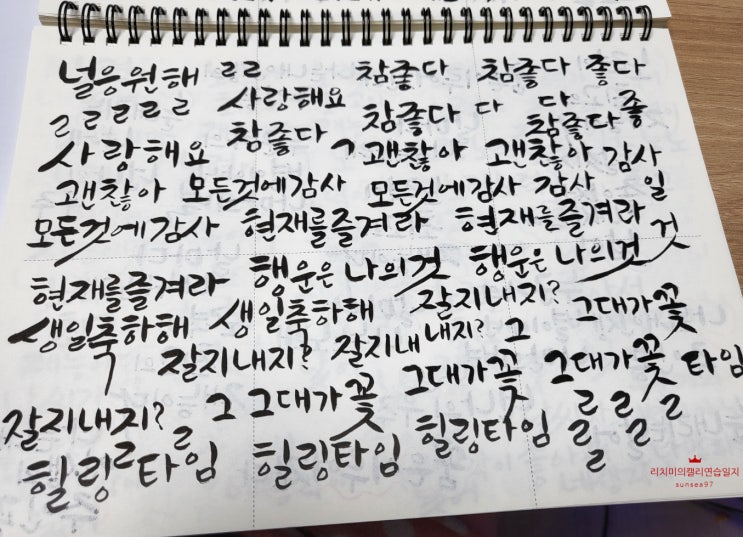 널응원해 ㄹㄹ 참좋다 참좋다 좋다
ㄹㄹㄹㄹㄹ 사랑해요 참좋다 다 다 좋
사랑해요 참좋다 참좋다
괜찮아 괜찮아 감사
괜찮아 모든것에감사 모든것에감사 감사 일
모든것에감사 현재를즐겨라 현재를즐겨라 것
현재를즐겨라 행운은 나의것 행운은 나의것
생일축하해 생일축하해 잘지내지? 그대가꽃
잘지내지? 잘지내 내지? 그
그대가꽃 그대가꽃 타임
잘지내지? 그 그대가꽃
힐링 ㄹ ㄹ 타임 힐링타임 힐링타임 ㄹ ㄹ ㄹ
ㄹ
리치미의캘리연습일지
sunsea97